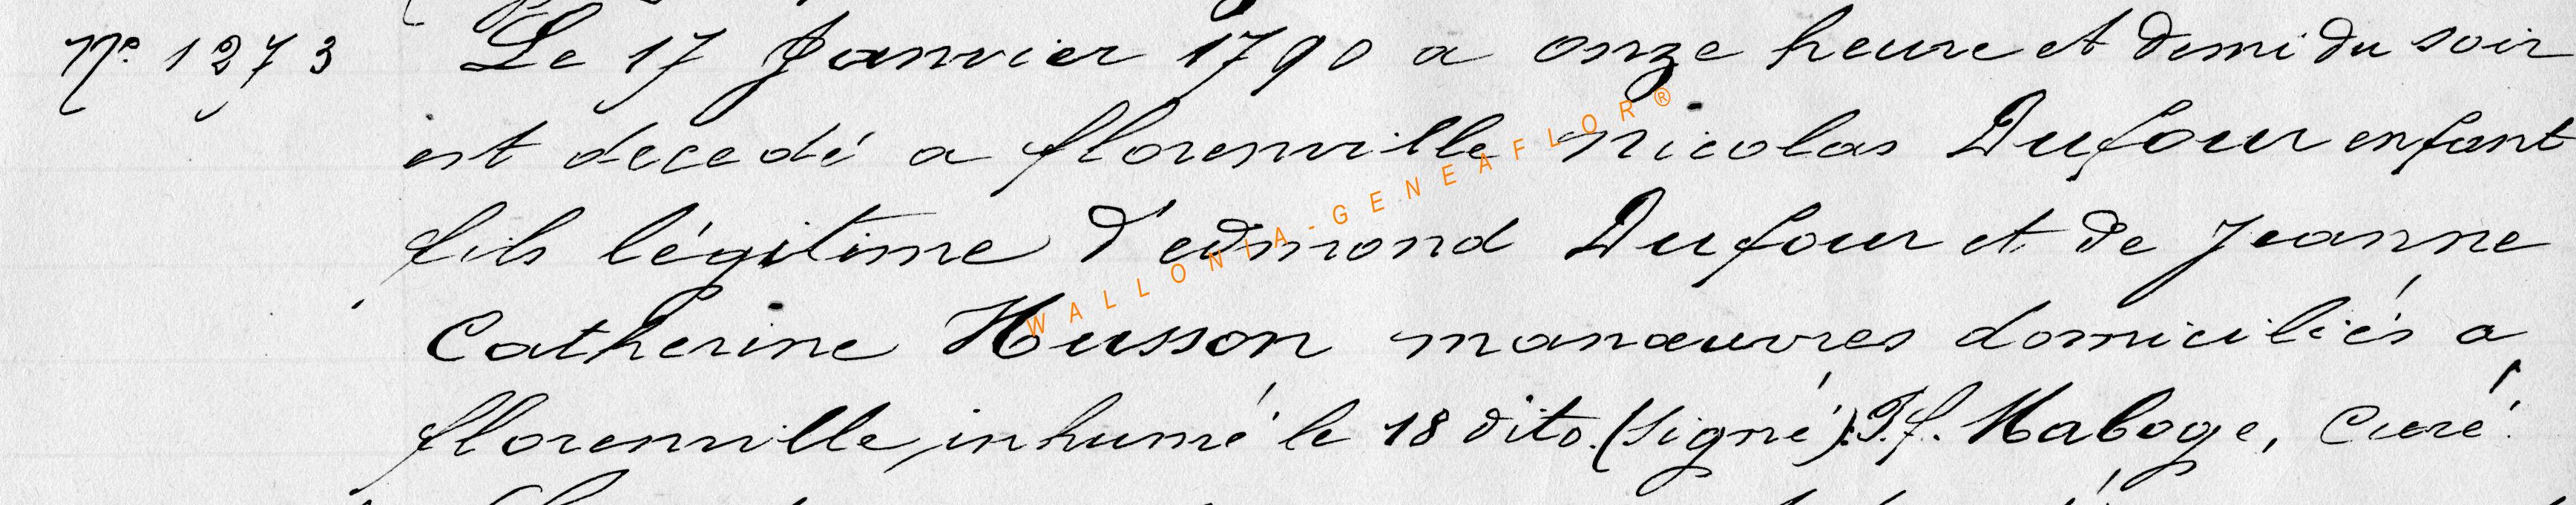 N° 1273 Le 17 Janvier 1790 a onze heure et demi du soir
est decedé a florenville Nicolas Dufour enfant
fils légitime d'edmond Dufour et de Jeanne
Catherine Husson manœuvres domiciliés a
florenville, inhumé le 18 dito. (signé): J. f. Maboge, Curé.
WALLONIA-GENEAFLOR®